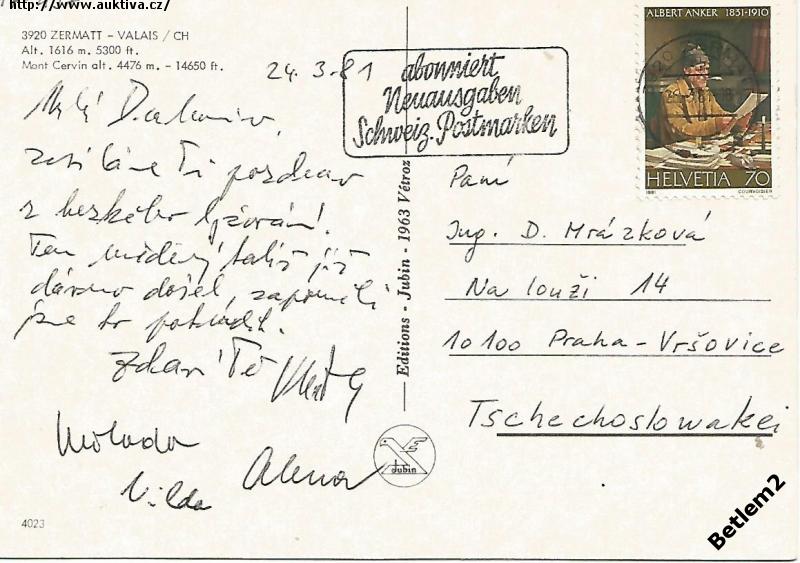 http://www.auktiva.cz/
3920 ZERMATT – VALAIS / CH
Alt. 1616 m. 5300 ft.
Mont Cervin alt. 4476 m. – 14650 ft.
24.3.81
abonniert
Neuausgaben
Schweiz. Postmarken
ALBERT ANKER 1831-1910
HELVETIA 70
1981 COURVOISIER
Milá
zasíláme Ti pozdrav
z hezkého lyžování!
Ten měděný talíř již
dávno došel, zapomněli
jsme to potvrdit.
Zdraví Tě
Molada
Vilda Alena
Editions - Jubin - 1963 Vétroz
Jubin
Paní
Ing. D. Mrázková
Na louži 14
10100 Praha - Vršovice
Tschechoslowakei
4023
Betlem2